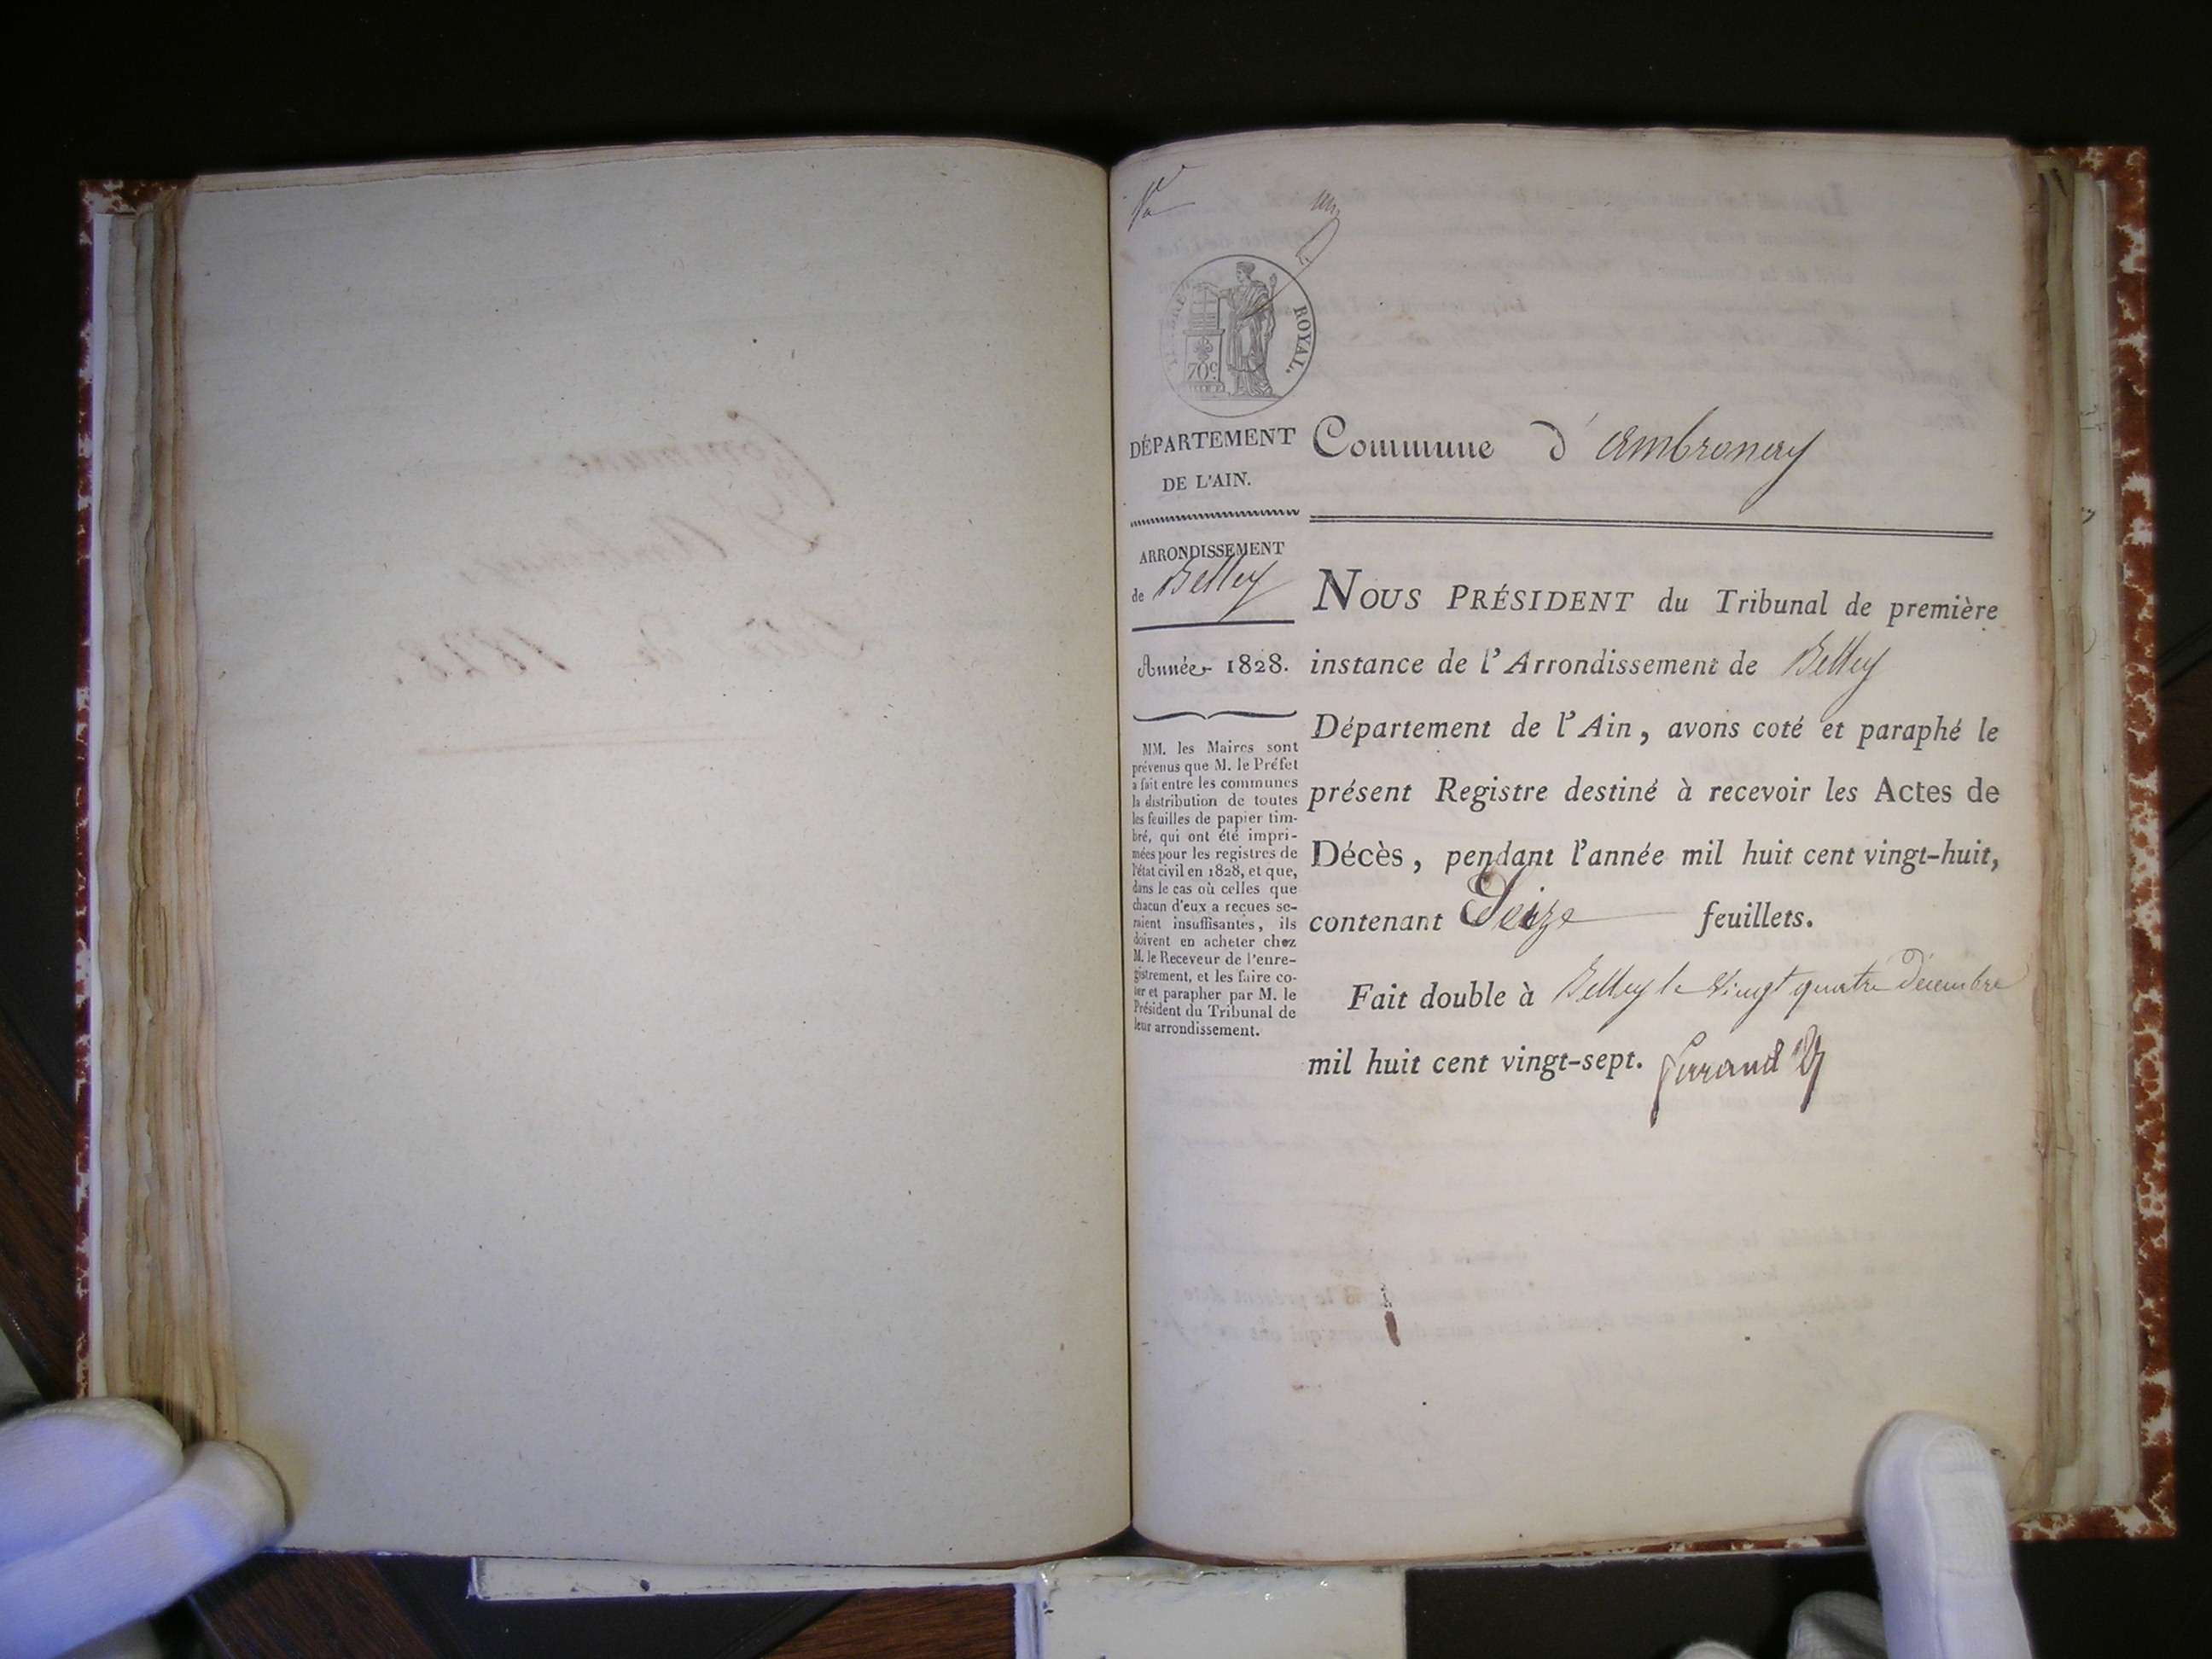 un
ROYAL.
70c
DÉPARTEMENT
DE L'AIN.
ARRONDISSEMENT
de Belley
Année 1828.
MM. les Maires sont
prévenus que M. le Préfet
a fait entre les communes
la distribution de toutes
les feuilles de papier tim-
bré, qui ont été impri-
mées pour les registres de
l'état civil en 1828, et que,
dans le cas où celles que
chacun d'eux a reçues se-
raient insuffisantes, ils
doivent en acheter chez
M. le Receveur de l'enre-
gistrement, et les faire co-
ter et parapher par M. le
Président du Tribunal de
leur arrondissement.
Commune d'ambronay
NOUS PRÉSIDENT du Tribunal de première
instance de l'Arrondissement de Belley
Département de l'Ain, avons coté et paraphé le
présent Registre destiné à recevoir les Actes de
Décès, pendant l'année mil huit cent vingt-huit,
contenant Seize feuillets.
Fait double à Belley le vingt quatre Décembre
mil huit cent vingt-sept.